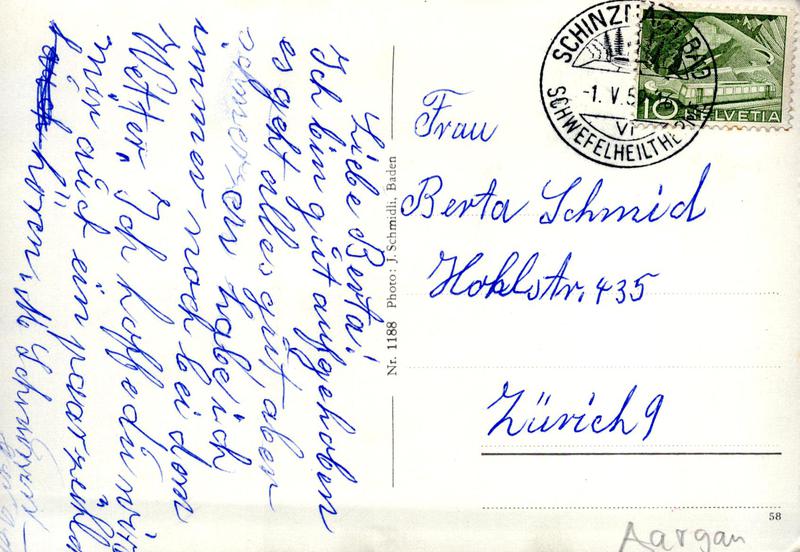 Liebe Berta!
Ich bin gut aufgehoben
es geht alles gut aber
schmerzen habe ich
immer noch bei dem
Wetter. Ich hoffe du wirst
mir auch ein paar
hören. M.
Nr. 1188 Photo: J. Schmidli, Baden
SCHINZNACH BAD
-1. V. 5
VI
SCHWEFELHEILTHERME
10 HELVETIA
Frau
Berta Schmid
Hohlstr. 435
Zürich 9
58
Aargau